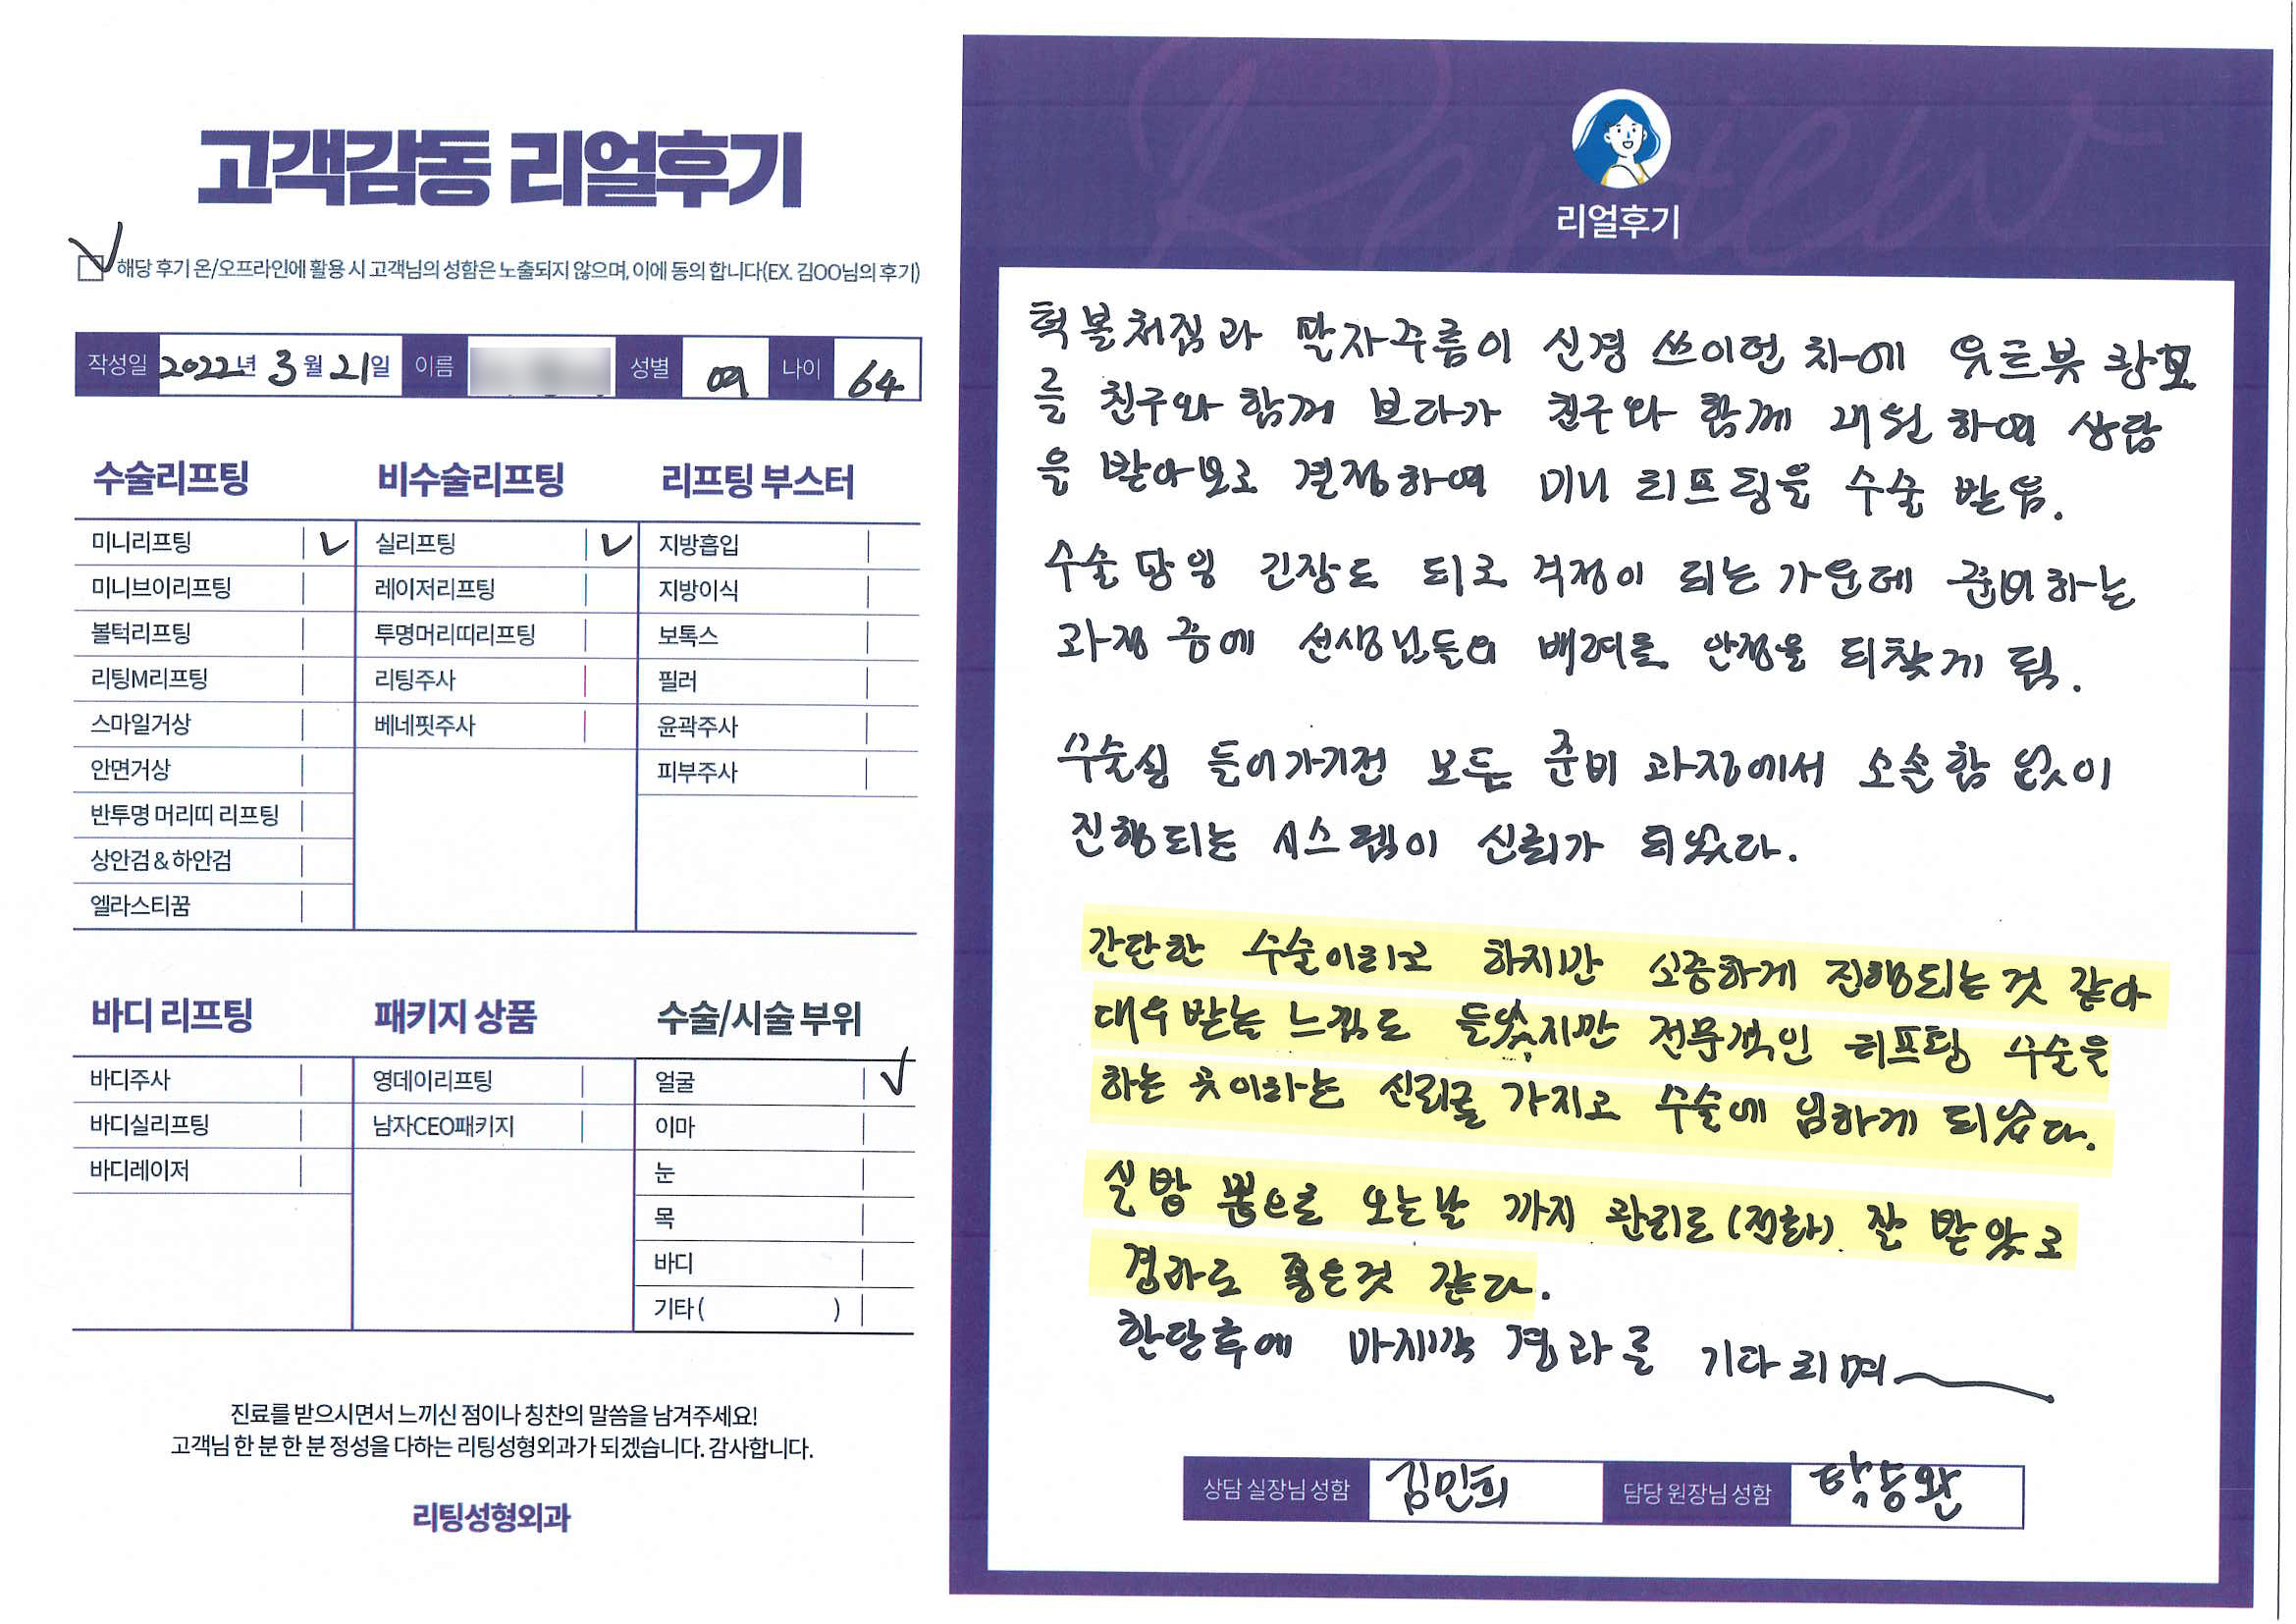 고객감동 리얼후기
해당 후기 온/오프라인에 활용 시 고객님의 성함은 노출되지 않으며, 이에 동의 합니다(EX. 김OO님의 후기)
작성일 2022년 3월 21일 이름 성별 여 나이 64
수술리프팅
미니리프팅
미니브이리프팅
볼턱리프팅
리팅M리프팅
스마일거상
안면거상
반투명 머리띠 리프팅
상안검 & 하안검
엘라스티꿈
비수술리프팅
실리프팅
레이저리프팅
투명머리띠리프팅
리팅주사
베네핏주사
리프팅 부스터
지방흡입
지방이식
보톡스
필러
윤곽주사
피부주사
바디 리프팅
바디주사
바디실리프팅
바디레이저
패키지 상품
영데이리프팅
남자CEO패키지
수술/시술 부위
얼굴
이마
눈
목
바디
기타( )
진료를 받으시면서 느끼신 점이나 칭찬의 말씀을 남겨주세요!
고객님 한 분 한 분 정성을 다하는 리팅성형외과가 되겠습니다. 감사합니다.
리팅성형외과
Review
리얼후기
턱볼처짐과 팔자주름이 신경 쓰이던 차에 유트브 광고
를 친구와 함께 보다가 친구와 함께 내원하여 상담
을 받아보고 결정하여 미니 리프팅을 수술 받음.
수술 당일 긴장도 되고 걱정이 되는 가운데 준비하는
과정 중에 선생님들의 배려로 안정을 되찾게 됨.
수술실 들어가기전 모든 준비 과정에서 소솔함 없이
진행되는 시스템이 신뢰가 되었다.
간단한 수술이라고 하지만 소중하게 진행되는것 같아
대우받는 느낌도 들었지만 전문적인 리프팅 수술을
하는 곳이라는 신뢰를 가지고 수술에 임하게 되었다.
실밥 뽑으로 오는날 까지 관리도(전화) 잘 받았고
경과도 좋은것 같다.
한달후에 마지막 경과를 기다리며
상담 실장님 성함 김민희 담당 원장님 성함